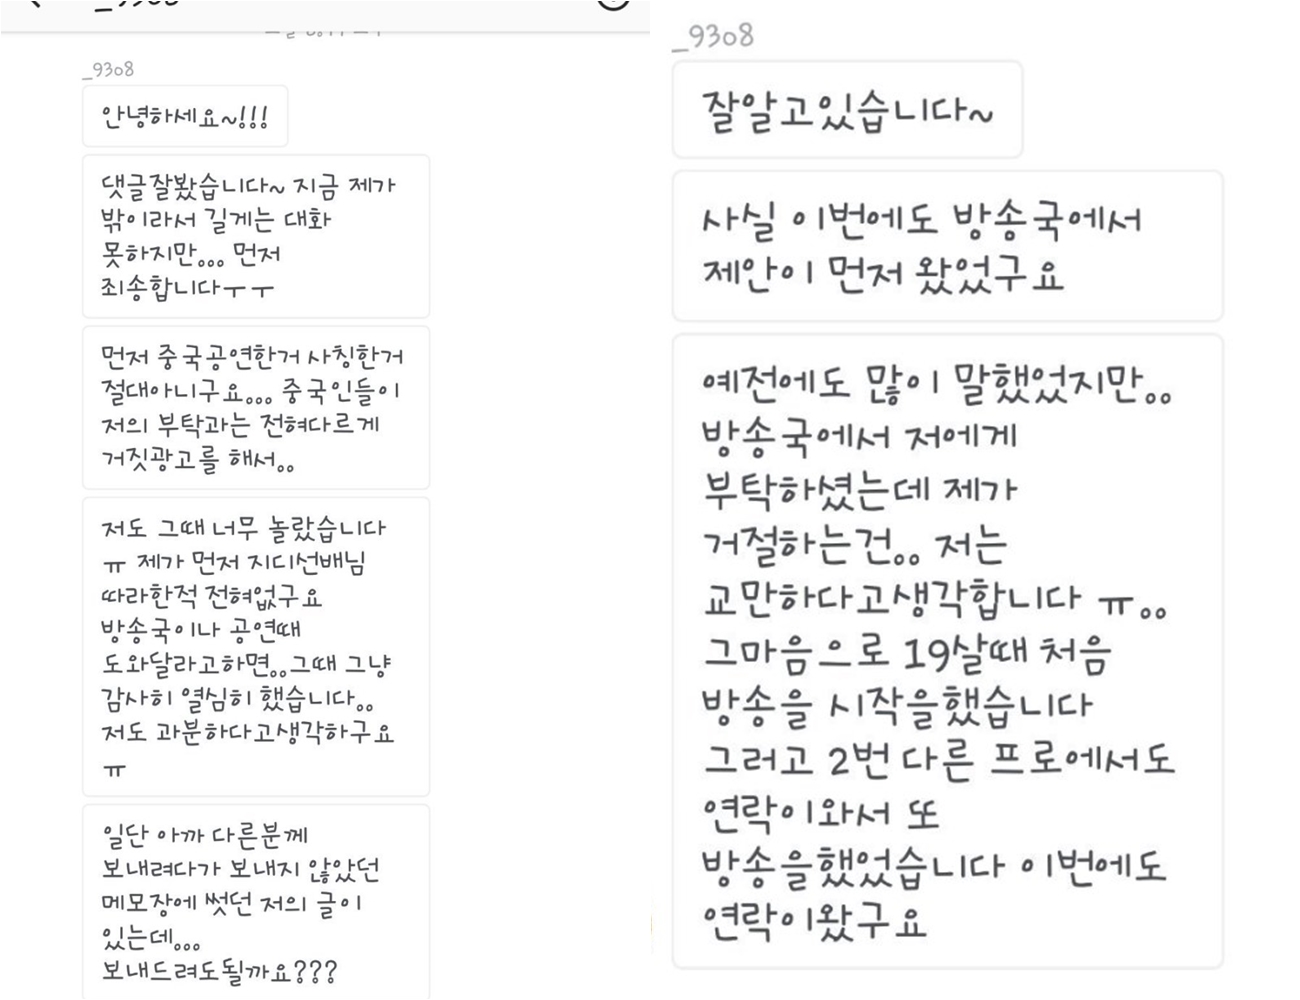 _9308
안녕하세요~!!!
댓글잘봤습니다~ 지금 제가
밖이라서 길게는 대화
못하지만... 먼저
죄송합니다ㅜㅜ
먼저 중국공연한거 사칭한거
절대아니구요... 중국인들이
저의 부탁과는 전혀다르게
거짓광고를 해서..
저도 그때 너무 놀랐습니다
ㅠ 제가 먼저 지디선배님
따라한적 전혀없구요
방송국이나 공연때
도와달라고하면..그때 그냥
감사히 열심히 했습니다..
저도 과분하다고생각하구요
ㅠ
일단 아까 다른분께
보내려다가 보내지 않았던
메모장에 썻던 저의 글이
있는데...
보내드려도될까요???
_9308
잘알고있습니다~
사실 이번에도 방송국에서
제안이 먼저 왔었구요
예전에도 많이 말했었지만..
방송국에서 저에게
부탁하셨는데 제가
거절하는건.. 저는
교만하다고생각합니다 ㅠ..
그마음으로 19살때 처음
방송을 시작을했습니다
그러고 2번 다른 프로에서도
연락이와서 또
방송을했었습니다 이번에도
연락이왔구요